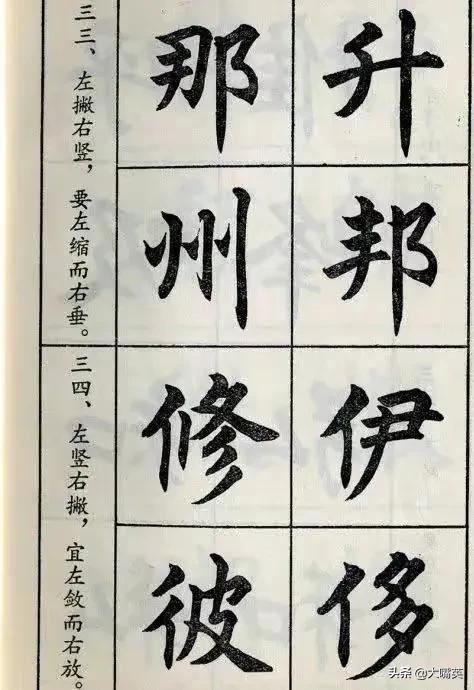 三三、左撇右竖，要左缩而右垂。
那 升
州 邦
三四、左竖右撇，宜左敛而右放。
修 伊
彼 侈
头条 @大嘴英